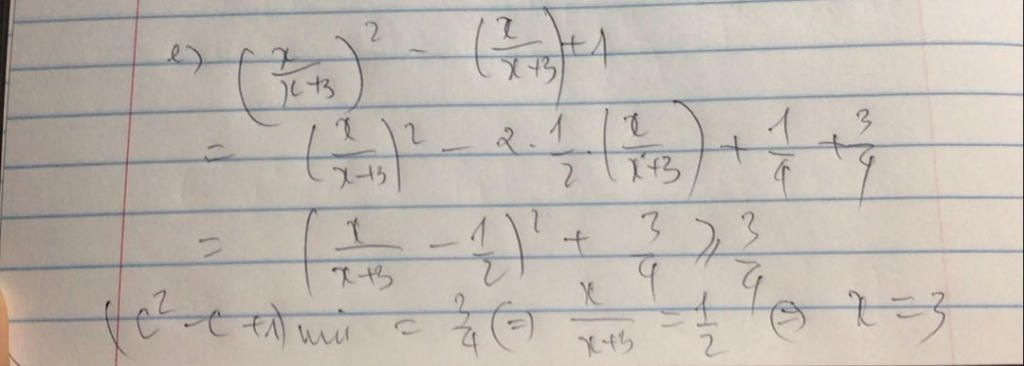 e) (x/(x+3))² - (x/(x+3)) + 1
= (x/(x+3))² - 2 · 1/2 · (x/(x+3)) + 1/4 + 3/4
= (x/(x+3) - 1/2)² + 3/4 ⩾ 3/4
(C² - C + 1) min = 3/4 (=) x/(x+3) = 1/2 (=) x = 3